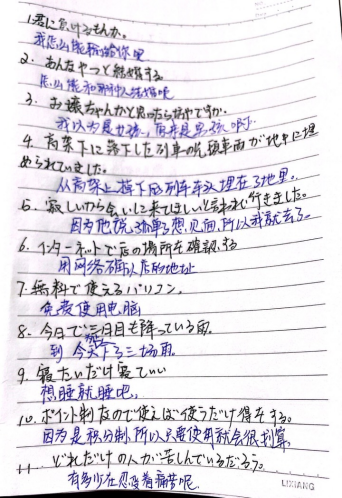 1.君に負けるもんか。
我怎么能输给你呢
2. あんなやつと結婚する
怎么能和那种人结婚呢
3. お嬢ちゃんかと思ったら坊やですか。
我以为是女孩，原来是男孩啊。
4. 高架下に落下した列車の先頭車両が地中に埋
められていました。
从高架上掉下的列车车头埋在了地里。
5. 寂しいから会いに来てほしいと言われて行きました。
因为他说孤单了想见面，所以我就去了。
6. インターネットで店の場所を確認する
用网络确认店的地址
7. 無料で使えるパソコン。
免费使用电脑
8. 今日で三日目も降っている雨。
到今天下了三场雨。
9. 寝たいだけ寝ていい
想睡就睡吧。
10. ポイント制なので使えば使うだけ得をする。
因为是积分制，所以只要使用就会很划算。
11 どれだけの人が苦しんでいるだろう。
有多少在忍受着痛苦呢
LIXIANG